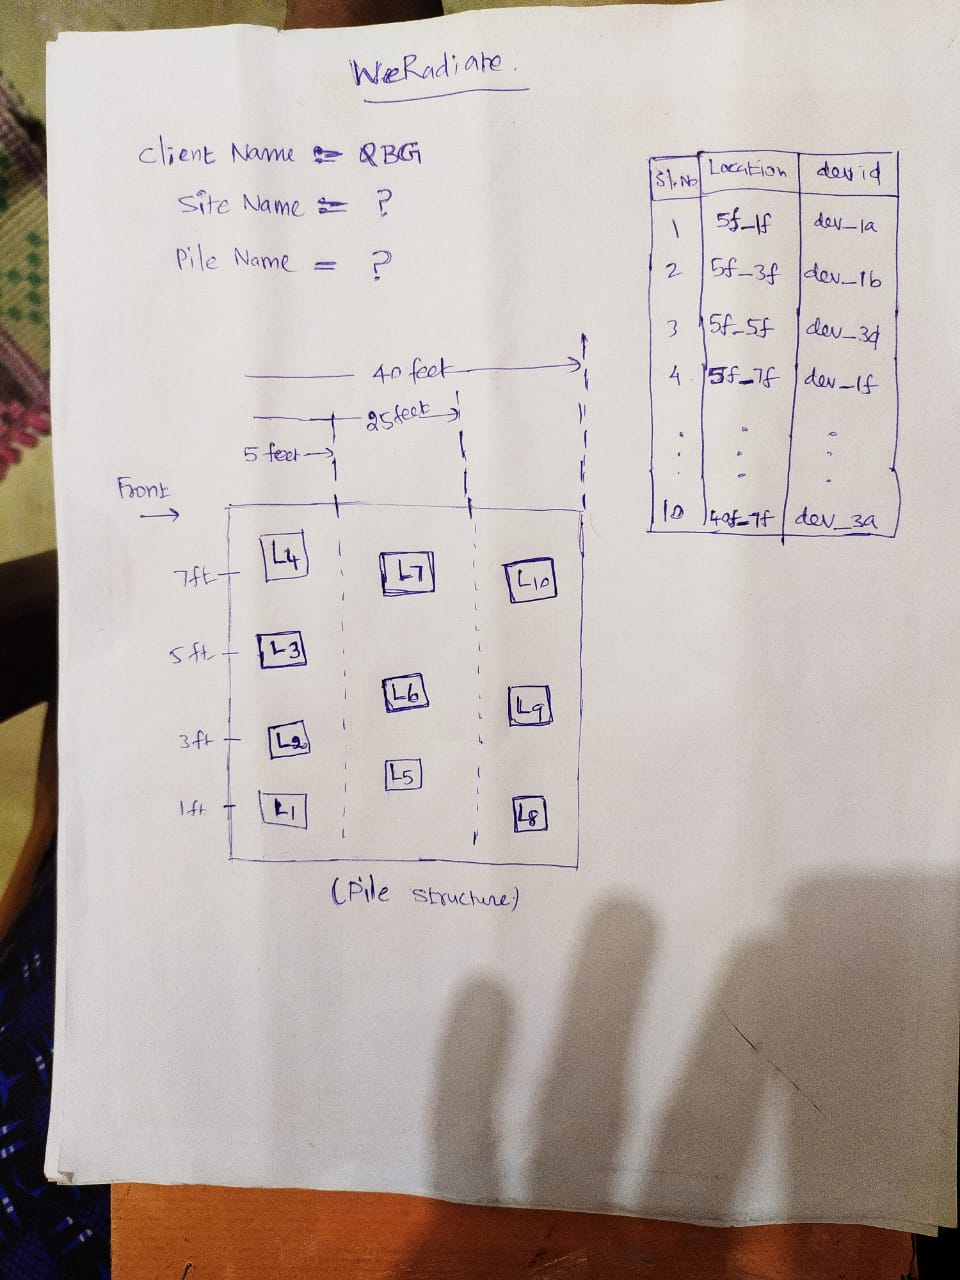 WeRadiate.
Client Name = QBG
Site Name = ?
Pile Name = ?
Sl.No Location dev id
1 5f_1f dev_1a
2 5f_3f dev_1b
3 5f_5f dev_3d
4. 5f_7f dev_1f
10 40f_7f dev_3a
40 feet
25 feet
5 feet
Front
7ft L4 L7 L10
5 ft L3
L6 L9
3ft L2
L5
1ft L1 L8
(Pile structure)